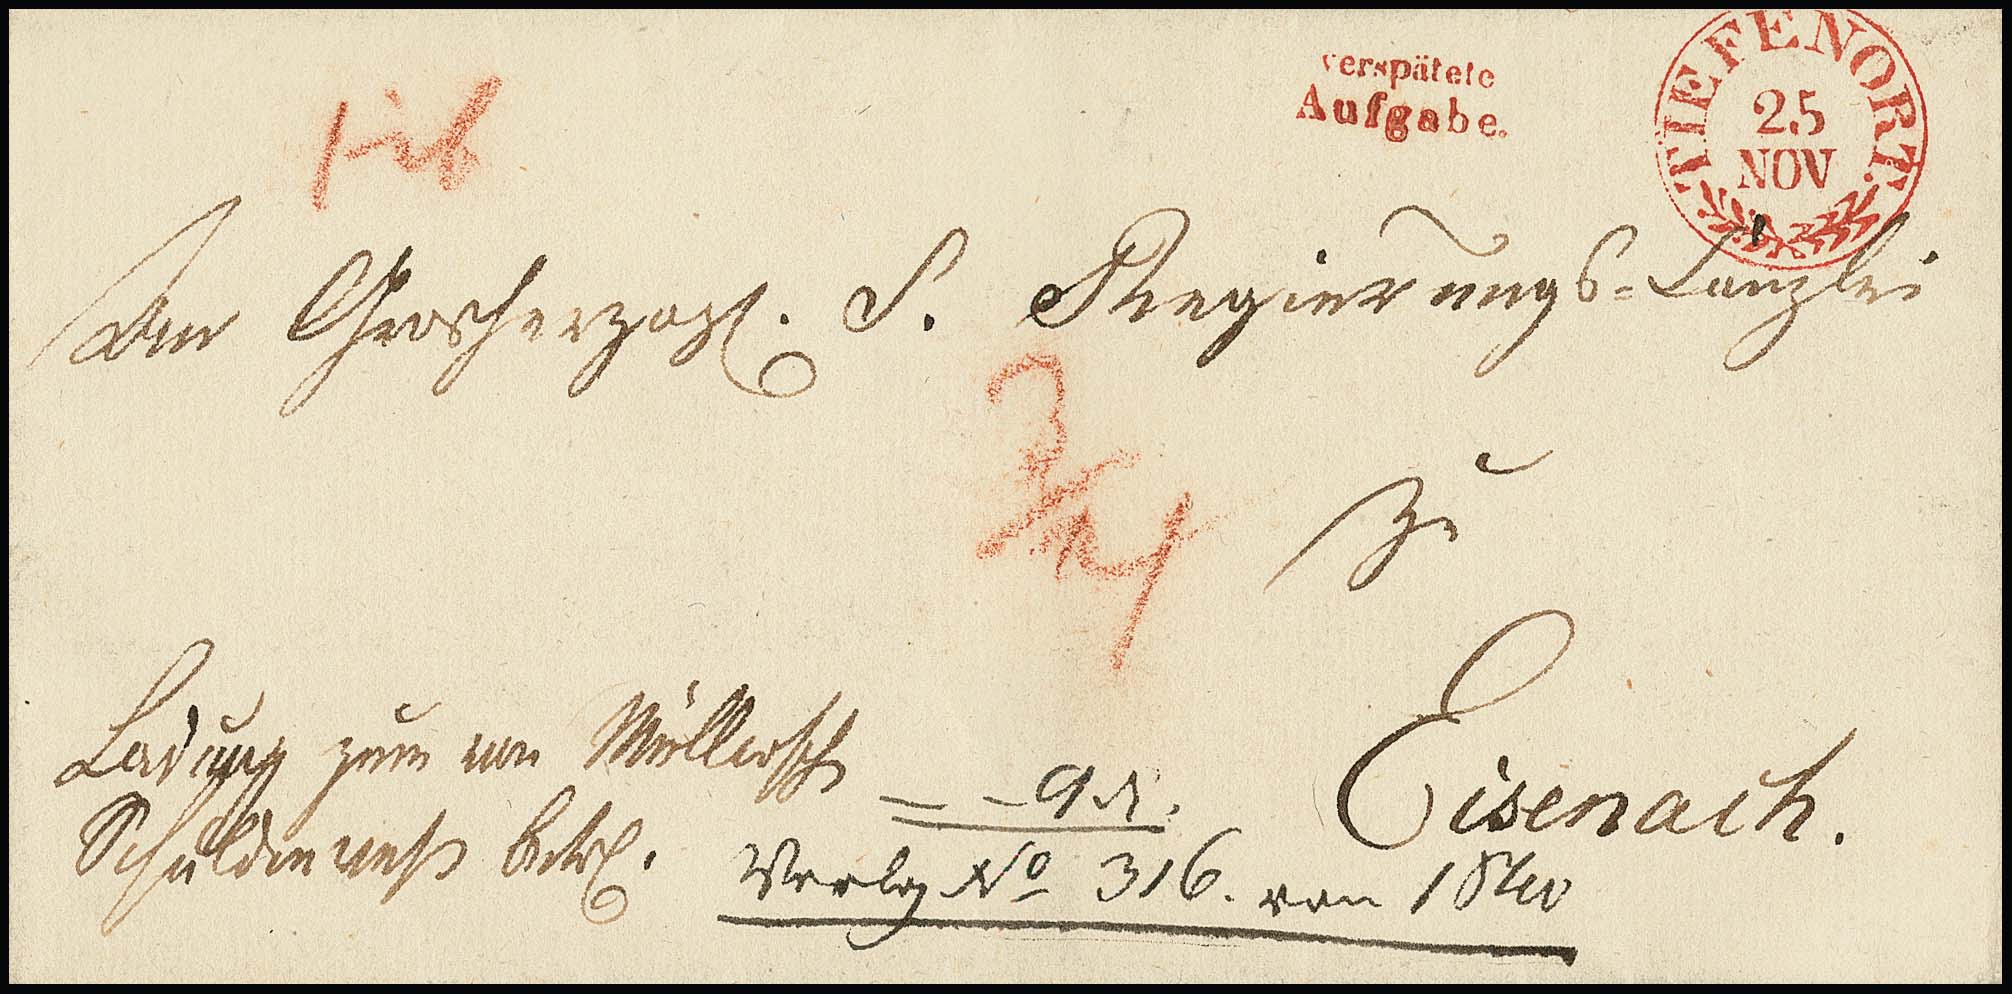 verspätete
Aufgabe.
TIEFENORT.
25
NOV
An Grosherzogl. S. Regierungs-Canzlei
zu
Eisenach.
Ladung zum von Müllersch
Schuldenweß betrf.
No 316. von 1840